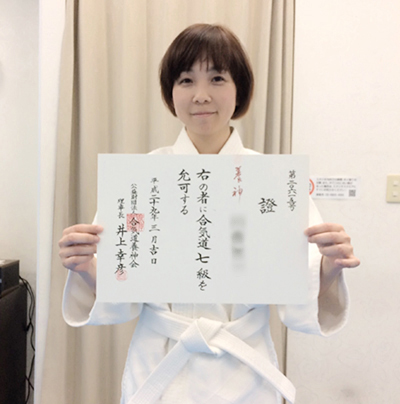 證
右の者に合気道七級を
允可する
平成二十九年三月吉日
公益財団法人合気道養神会
理事長 井上幸彦